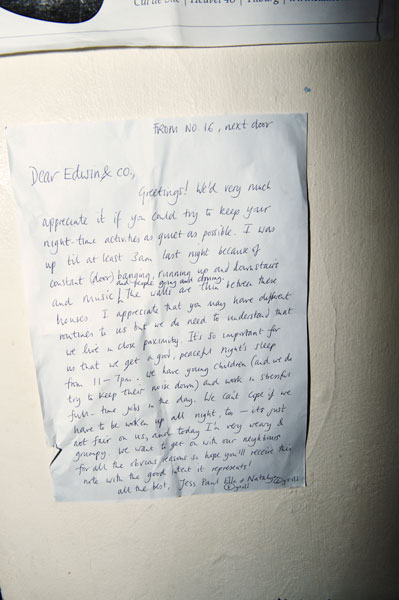 Cul de Sac | Heuvel 46 | Tilburg |
FROM NO. 16, next door
Dear Edwin & co.,
Greetings! We'd very much
appreciate it if you could try to keep your
night-time activities as quiet as possible. I was
up til at least 3am last night because of
constant (door) banging, running up and downstairs
and people going and coming.
and music! The walls are thin between these
houses. I appreciate that you may have different
routines to us but we do need to understand that
we live in close proximity. It's so important for
us that we get a good, peaceful night's sleep
from 11-7pm. We have young children (and we do
try to keep their noise down) and work in stressful
full-time jobs in the day. We can't cope if we
have to be woken up all night, too - its just
not fair on us, and today I'm very weary &
grumpy. We want to get on with our neighbours
for all the obvious reasons so hope you'll receive this
note with the good intent it represents!
all the best, Jess, Paul Ella & Nataly